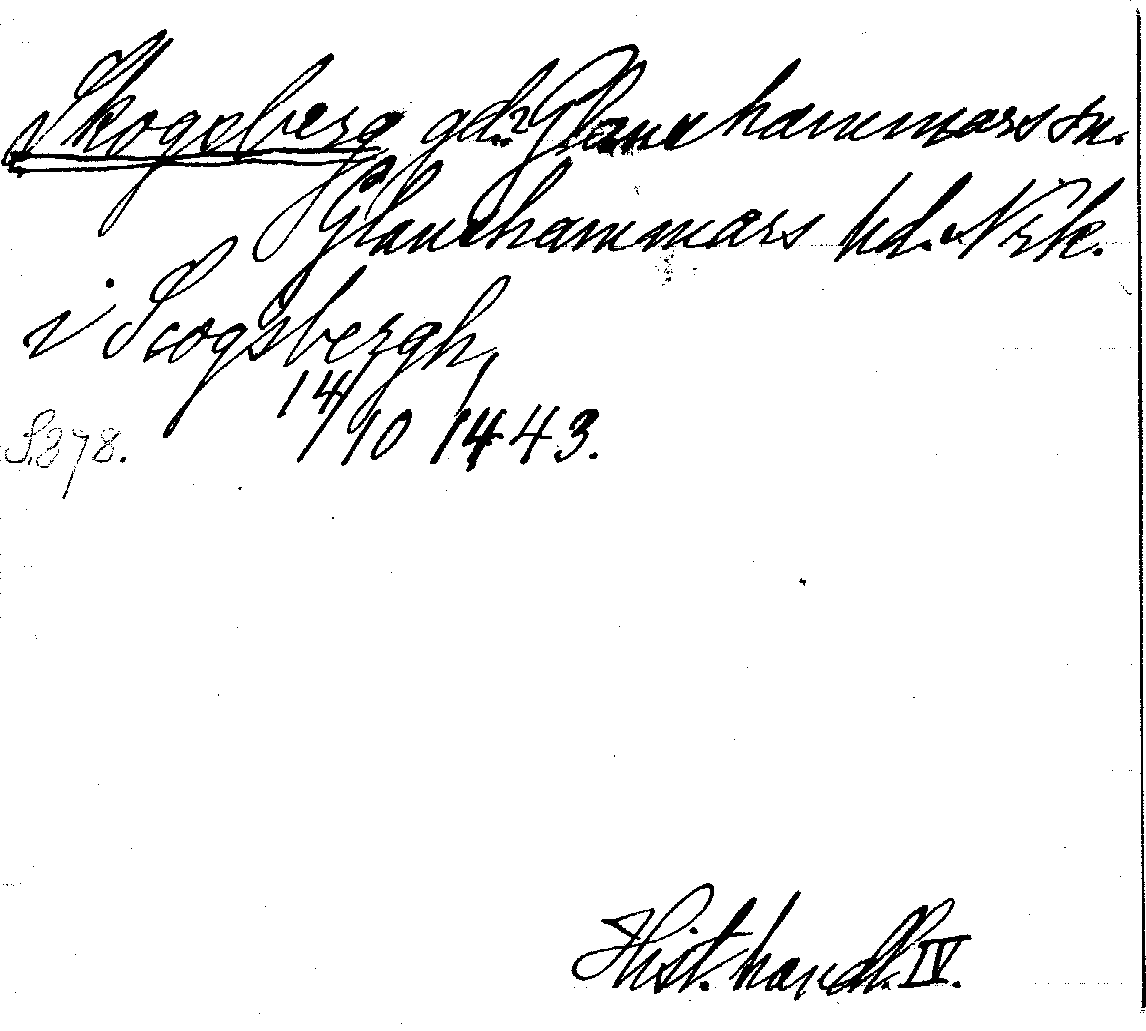 Skogsberg gd? Glanshammars sn.
Glanshammars hd. Nrk.
i Scogsbergh
14/10 1443.
S. 378.
Hist. handl. IV.